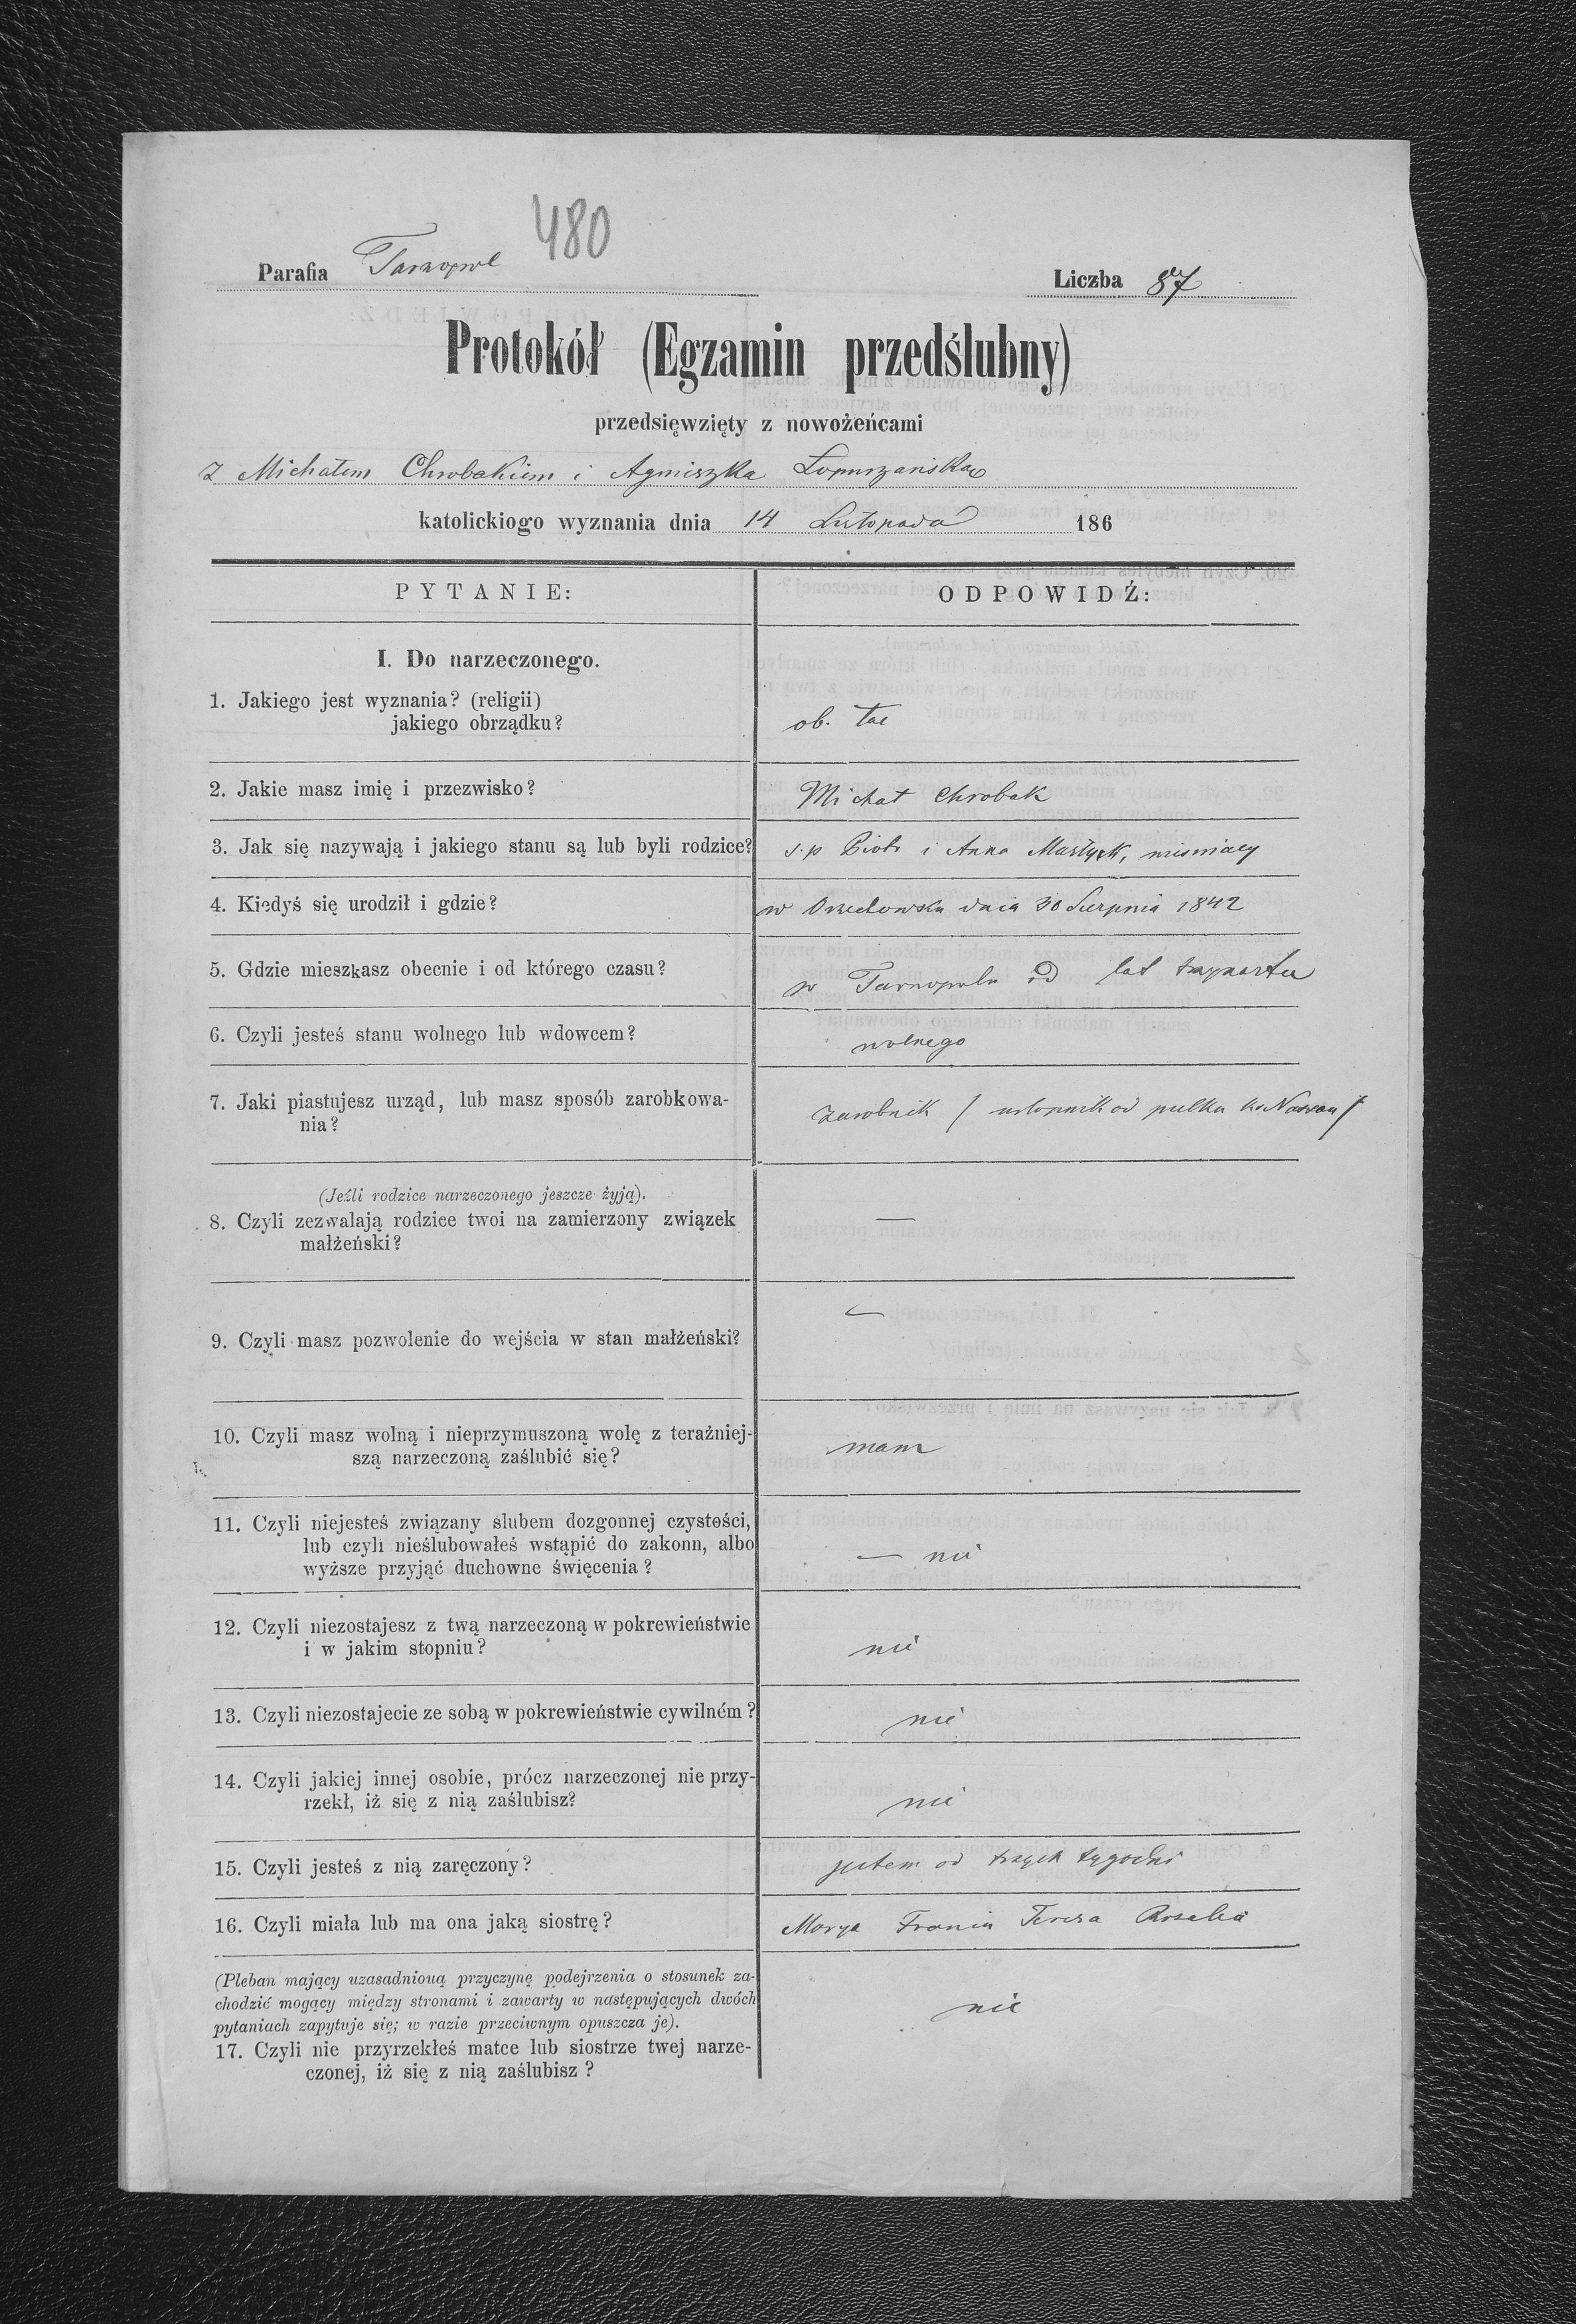 480
Parafia Tarnopol
Liczba 87
Protokół (Egzamin przedślubny)
przedsięwzięty z nowożeńcami
z Michałem Chrobakiem i Agniszka Łopuszańska
katolickiogo wyznania dnia 14 Listopada 186
PYTANIE:
ODPOWIDŹ:
I. Do narzeczonego.
1. Jakiego jest wyznania? (religii)
jakiego obrządku?
ob. łac
2. Jakie masz imię i przezwisko?
Michał Chrobak
3. Jak się nazywają i jakiego stanu są lub byli rodzice?
s.p Piotr i Anna
4. Kiedyś się urodził i gdzie?
w dnia 30 Sierpnia 1842
5. Gdzie mieszkasz obecnie i od którego czasu?
w Tarnopolu od lat
6. Czyli jesteś stanu wolnego lub wdowcem?
wolnego
7. Jaki piastujesz urząd, lub masz sposób zarobkowa-
nia?
zarobnik / urlopnik od pułku ks Nassau /
(Jeźli rodzice narzeczonego jeszcze żyją).
8. Czyli zezwalają rodzice twoi na zamierzony związek
małżeński?
—
—
9. Czyli masz pozwolenie do wejścia w stan małżeński?
10. Czyli masz wolną i nieprzymuszoną wolę z teraźniej-
szą narzeczoną zaślubić się?
mam
11. Czyli niejesteś związany ślubem dozgonnej czystości,
lub czyli nieślubowałeś wstąpić do zakonn, albo
wyższe przyjąć duchowne święcenia?
— nie
12. Czyli niezostajesz z twą narzeczoną w pokrewieństwie
i w jakim stopniu?
nie
13. Czyli niezostajecie ze sobą w pokrewieństwie cywilném?
nie
14. Czyli jakiej innej osobie, prócz narzeczonej nie przy-
rzekł, iż się z nią zaślubisz?
nie
15. Czyli jesteś z nią zaręczony?
jestem od trzech tygodni
16. Czyli miała lub ma ona jaką siostrę?
Marya Frania Teresa Rozalia
(Pleban mający uzasadnioną przyczynę podejrzenia o stosunek za-
chodzić mogący między stronami i zawarty w następujących dwóch
pytaniach zapytuje się; w razie przeciwnym opuszcza je).
17. Czyli nie przyrzekłeś matce lub siostrze twej narze-
czonej, iż się z nią zaślubisz?
nie